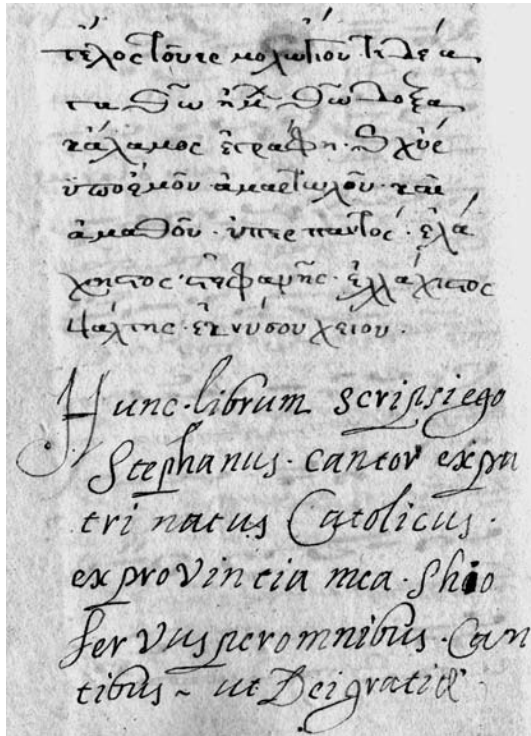 τέλος
Θῶ δόξα
κάλαμος ἐγράφη.
ὑπὸ ἐμοῦ ἁμαρτωλοῦ. καὶ
ἀμαθοῦ. ὑπὲρ παντός. ἐλά
χηστος στέφανης. ἐλλάχιστος
ψάλτης. ἐκ νύσου χείου.
Hunc. librum scripsi ego
Stephanus. cantor ex pa
tri natus Catolicus.
ex provintia mea. Shio
ser vus per omnibus. Can
tibus ~ ut Dei gratia